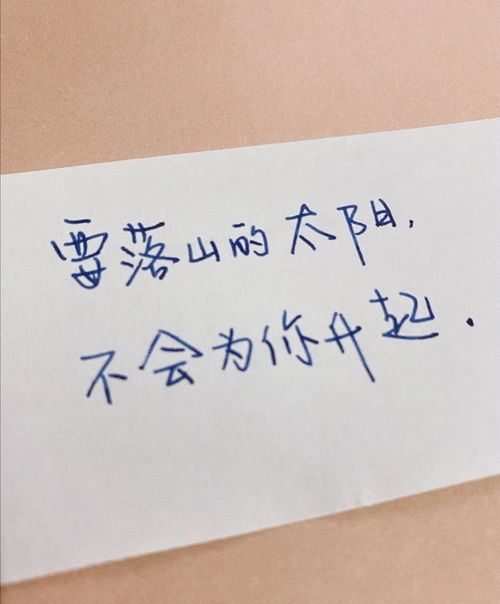 要落山的太阳,
不会为你升起.